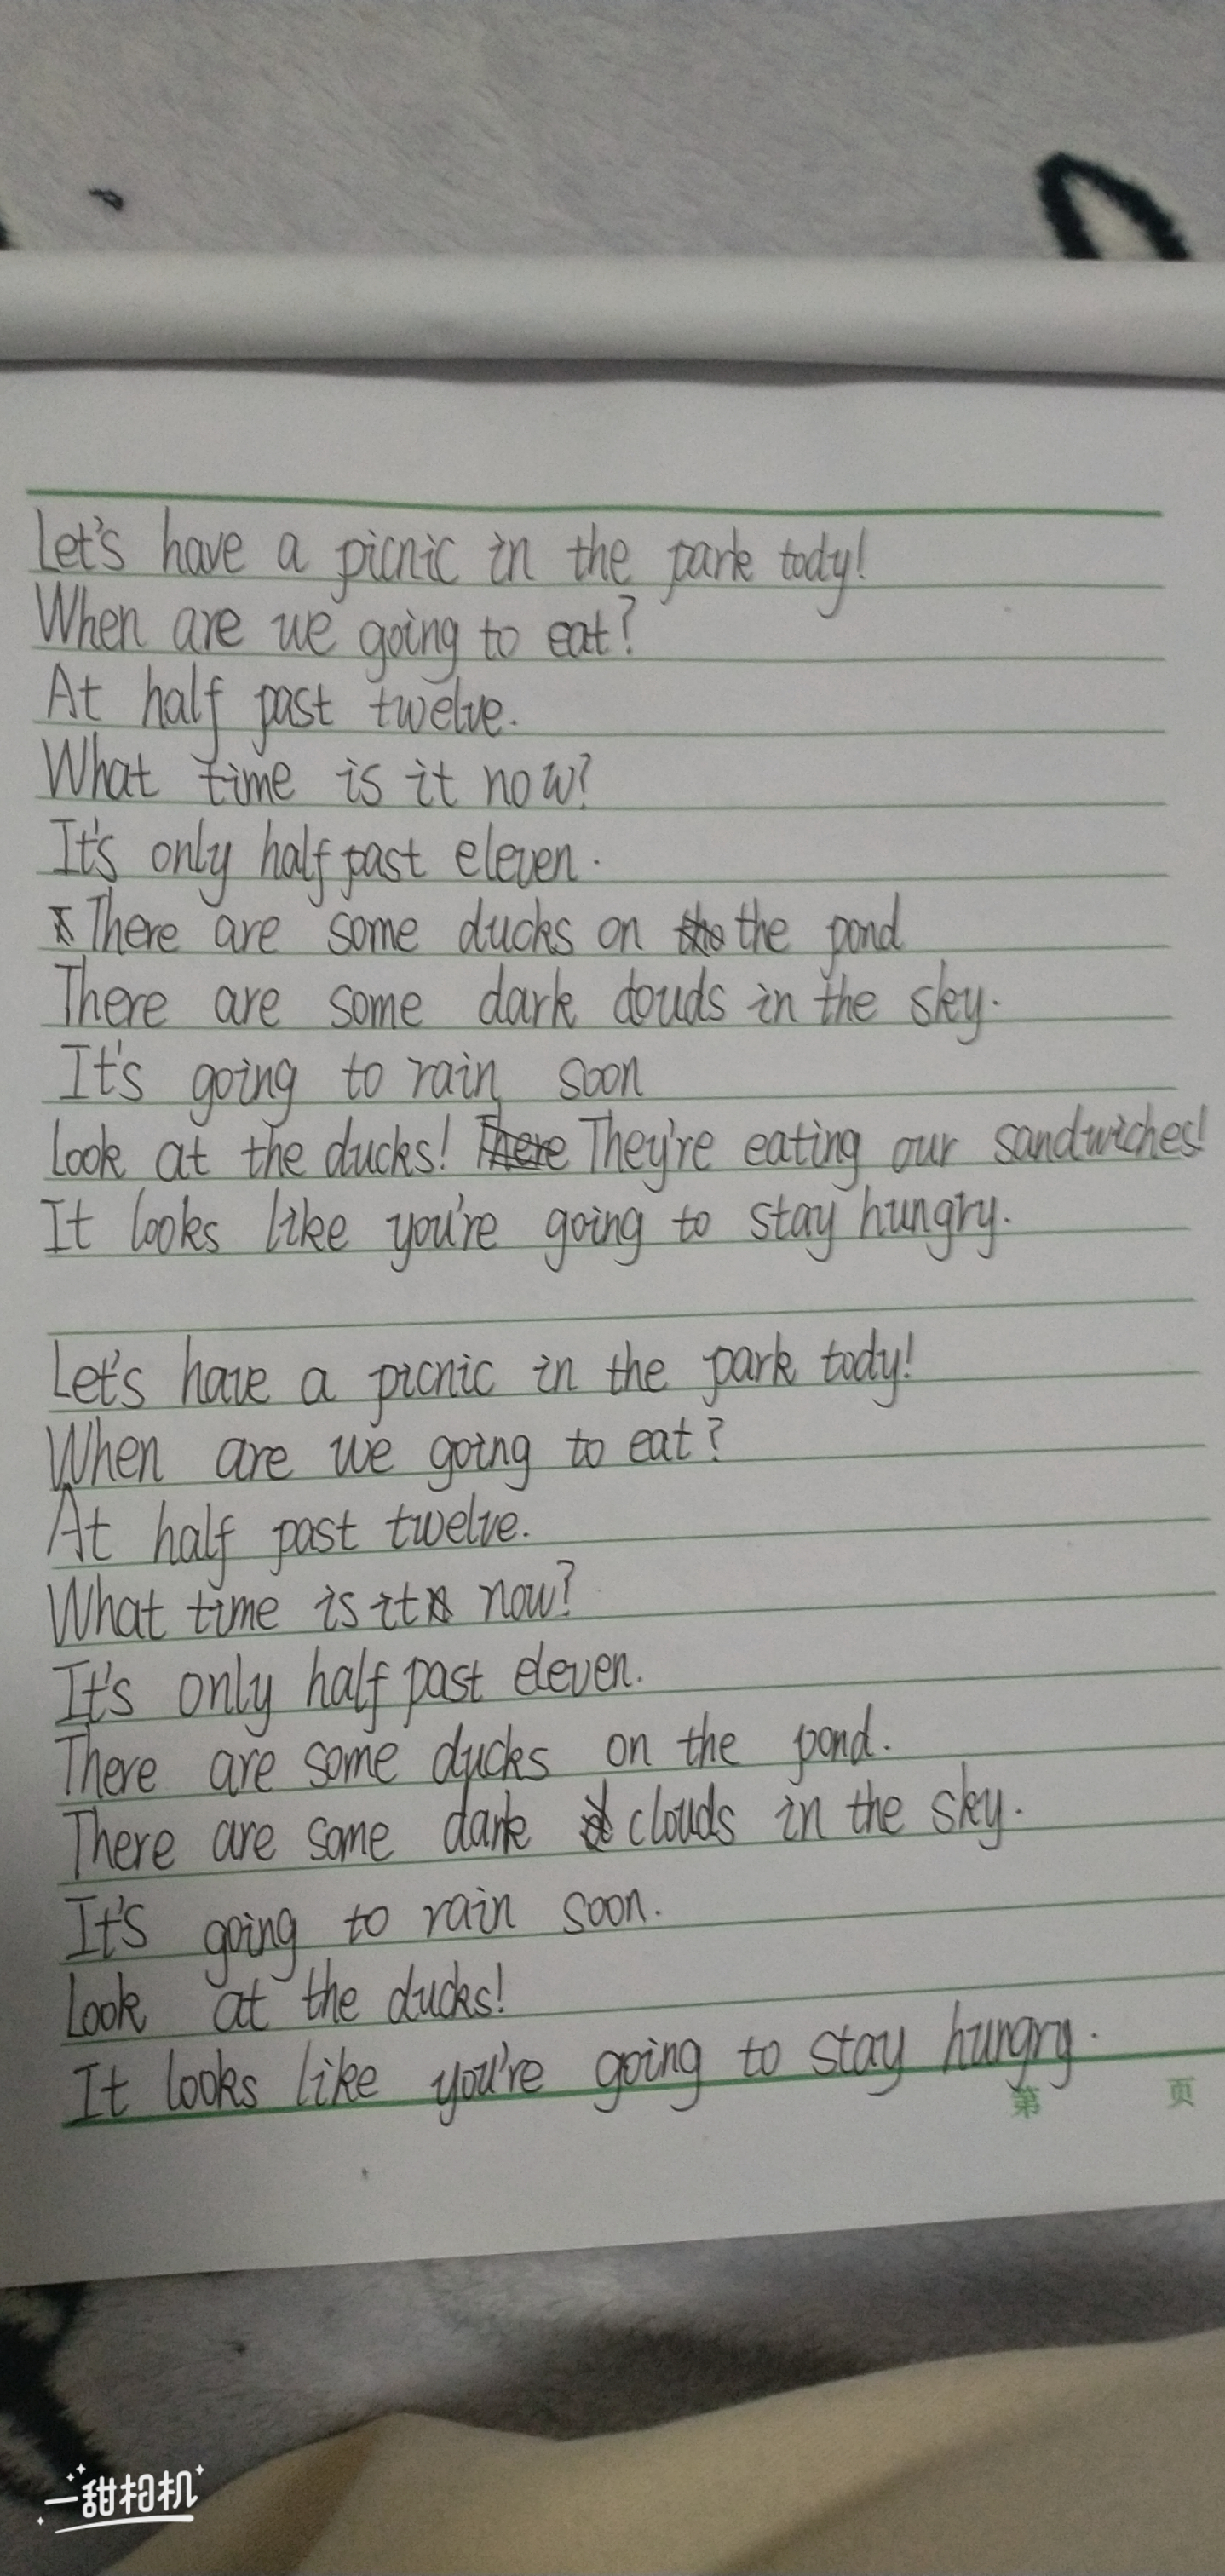 Let's have a picnic in the park tody!
When are we going to eat?
At half past twelve.
What time is it now?
It's only half past eleven.
There are some ducks on the pond
There are some dark douds in the sky.
It's going to rain soon
Look at the ducks! They're eating our sandwiches!
It looks like you're going to stay hungry.
Let's have a picnic in the park tody!
When are we going to eat?
At half past twelve.
What time is it now?
It's only half past eleven.
There are some ducks on the pond.
There are some dark clouds in the sky.
It's going to rain soon.
Look at the ducks!
It looks like you're going to stay hungry.
第 页
一甜相机